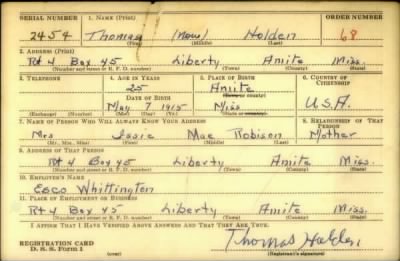 SERIAL NUMBER 1. NAME (Print) ORDER NUMBER
2454 Thomas (None) Holden 68
(First) (Middle) (Last)
2. ADDRESS (Print)
Rt 4 Box 45 Liberty Amite Miss.
(Number and street or R. F. D. number) (Town) (County) (State)
3. TELEPHONE 4. AGE IN YEARS 5. PLACE OF BIRTH 6. COUNTRY OF CITIZENSHIP
25 Amite
DATE OF BIRTH (Town or county)
May 7 1915 Miss U.S.A.
(Exchange) (Number) (Mo.) (Day) (Yr.) (State or country)
7. NAME OF PERSON WHO WILL ALWAYS KNOW YOUR ADDRESS 8. RELATIONSHIP OF THAT PERSON
Mrs Issie Mae Robison Mother
(Mr., Mrs., Miss) (First) (Middle) (Last)
9. ADDRESS OF THAT PERSON
Rt 4 Box 45 Liberty Amite Miss.
(Number and street or R. F. D. number) (Town) (County) (State)
10. EMPLOYER'S NAME
Esco Whittington
11. PLACE OF EMPLOYMENT OR BUSINESS
Rt 4 Box 45 Liberty Amite Miss.
(Number and street or R. F. D. number) (Town) (County) (State)
I AFFIRM THAT I HAVE VERIFIED ABOVE ANSWERS AND THAT THEY ARE TRUE.
REGISTRATION CARD Thomas Holden
D. S. S. Form 1 (over) (Registrant's signature)